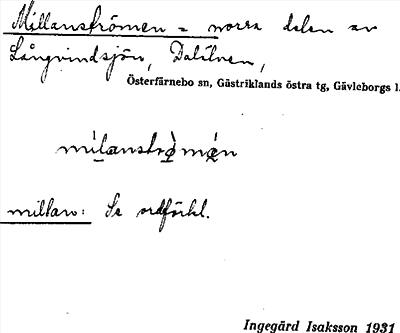 Millanströmen = norra delen av
Långvindsjön, Dalälven,
Österfärnebo sn, Gästriklands östra tg, Gävleborgs l.
milanstròmén
millan: Se ordförkl.
Ingegärd Isaksson 1931